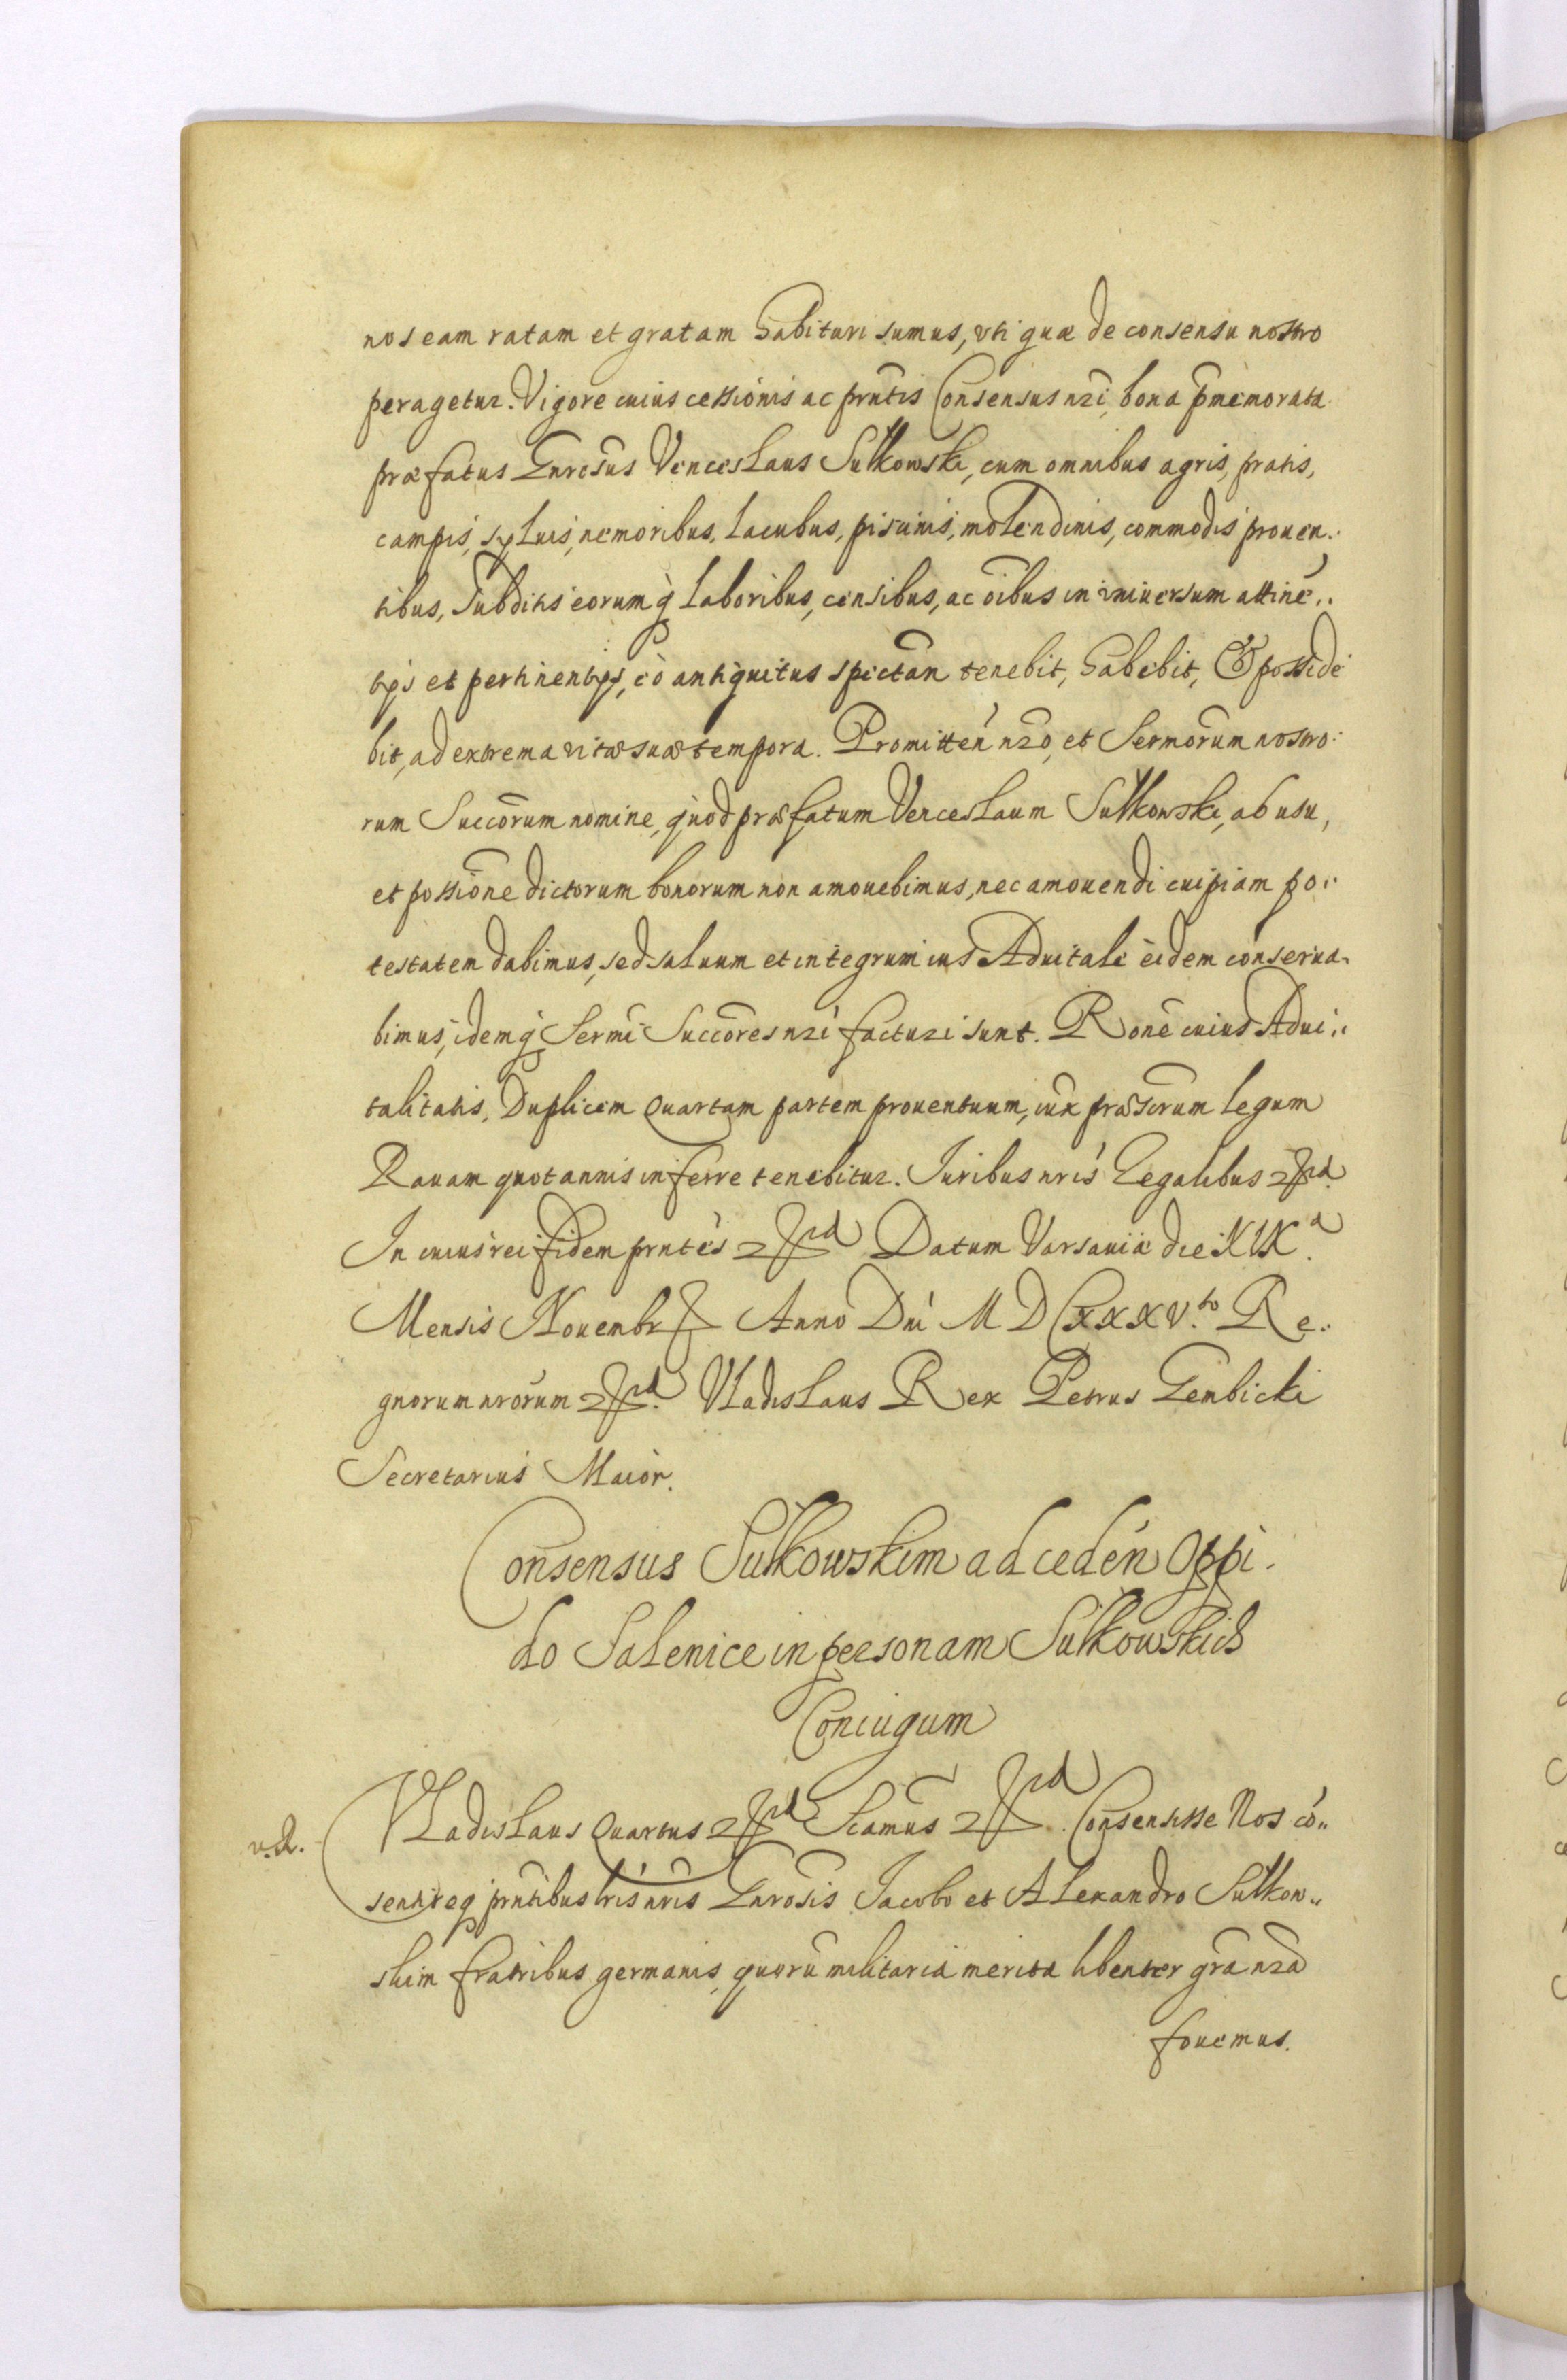 nos eam ratam et gratam habituri sumus, vti quæ de consensu nostro
peragetur. Vigore cuius cessionis ac prñtis Consensus nr̃i, bona p̃memorata
præfatus Gnrosus Venceslaus Sułkowski, cum omnibus agris, pratis,
campis, syluis, nemoribus, lacubus, piscinis, molendinis, commodis prouen:
tibus, subditis eorumq̃ laboribus, censibus, ac oĩbus in vniuersum attinẽ:
tijs et pertinentijs, eò antiquitus spectañ tenebit, habebit, & posside
bit, ad extrema vitæ suæ tempora. Promitteñ nr̃o, et Sermõrum nostro:
rum Succõrum nomine, quod præfatum Venceslaum Sułkowski, ab usu,
et possiõne dictorum bonorum non amouebimus, nec amouendi cuipiam po:
testatem dabimus, sed saluum et integrum ius Aduitale eidem conserua:
bimus, idemq̃ Sermĩ Succõres nr̃i facturi sunt. Rõne cuius Adui:
talitatis, Duplicem Quartam partem prouentuum, iux præscrum legum
Rauam quotannis inferre tenebitur. Iuribus nr̃is Regalibus &rd.
In cuius rei fidem prntes &rd Datum Varsauiæ die XIX a.
Mensis Nouembr Anno Dni M D CXXXV.to Re:
gnorum nrõrum &rd. Vladislaus Rex Petrus Gembicki
Secretarius Maior.
Consensus Sułkowskim ad cedeñ Oppi:
do Salenice in personam Sułkowskich
Coniugum
v.d. Vladislaus Quartus &rd Scamus &rd. Consensisse Nos cõ:
sentireq̃ prñtibus lr̃is nr̃is Gnrosis Jacobo et Alexandro Sułkow:
skim fratribus germanis, quorũ militaria merita libenter gr̃a nr̃a
fouemus.